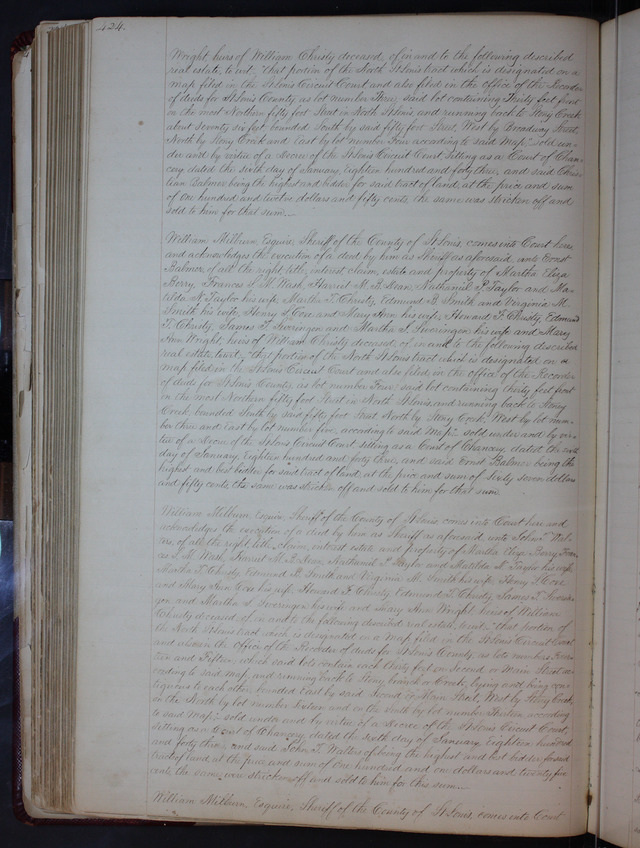 424.
Wright, heirs of William Christy deceased, of in and to the following described
real estate, to wit, "that portion of the North St Louis tract which is designated on a
map filed in the St Louis Circuit Court and also filed in the office of the Recorder
of deeds for St Louis County, as lot number Three, said lot containing Thirty feet front
on the most Northern fifty foot Street in North St Louis and running back to Stony Creek
about seventy six feet, bounded South by said fifty foot Street, West by Broadway Street,
North by Stony Creek and East by lot number Four according to said map," sold un-
der and by virtue of a Decree of the St Louis Circuit Court, Sitting as a Court of Chan-
cery dated the sixth day of January, Eighteen hundred and forty three, and said
Balmer being the highest and best bidder for said tract of land, at the price and sum
of One hundred and twelve dollars and fifty cents, the same was stricken off and
sold to him for that sum.
William Milburn, Esquire, Sheriff of the County of St Louis, comes into Court here
and acknowledges the execution of a deed by him as Sheriff as aforesaid, unto Ernst
Balmer, of all the right, title, interest, claim, estate and property of Martha Eliza
Berry, Frances S. M. Wash, Harriet M. B. Deane, Nathaniel P. Taylor and Ma-
tilda N. Taylor his wife, Martha T. Christy, Edmund B. Smith and Virginia M.
Smith his wife, Henry S. Coxe and Mary Ann his wife, Howard F. Christy, Edmund
T. Christy, James T. Swearingen and Martha S. Swearingen his wife and Mary
Ann Wright, heirs of William Christy deceased, of in and to the following described
real estate, to wit, "that portion of the North St Louis tract which is designated on a
map filed in the St Louis Circuit Court and also filed in the office of the Recorder
of deeds for St Louis County, as lot number Four, said lot containing thirty feet front
on the most Northern fifty foot Street in North St Louis, and running back to Stony
Creek, bounded South by said fifty foot Street, North by Stony Creek, West by lot num-
ber three and East by lot number five, according to said Map," sold under and by vir-
tue of a Decree of the St Louis Circuit Court sitting as a Court of Chancery, dated the sixth
day of January, Eighteen hundred and forty three, and said Ernst Balmer being the
highest and best bidder for said tract of land, at the price and sum of Sixty seven dollars
and fifty cents, the same was stricken off and sold to him for that sum.
William Milburn, Esquire, Sheriff of the County of St Louis, comes into Court here and
acknowledges the execution of a deed by him as Sheriff as aforesaid, unto John T. Wal-
ters, of all the right, title, claim, interest, estate and property of Martha Eliza Berry, Fran-
ces S. M. Wash, Harriet M. B. Deane, Nathaniel P. Taylor and Matilda N. Taylor his wife,
Martha T. Christy, Edmund B. Smith and Virginia M. Smith his wife, Henry S. Coxe
and Mary Ann Coxe his wife, Howard F. Christy, Edmund T. Christy, James T. Swearin-
gen, and Martha S. Swearingen his wife and Mary Ann Wright, heirs of William
Christy deceased, of in and to the following described real estate, to wit, "that portion of
the North St Louis tract which is designated on a Map, filed in the St Louis Circuit Court
and also in the office of the Recorder of deeds for St Louis County, as lots numbers Four-
teen and Fifteen, which said lots contain each thirty feet on Second or Main Street ac-
cording to said map, and running back to Stony branch or Creek, lying and being con-
tiguous to each other, bounded East by said Second or Main Street, West by Stony Creek,
on the North by lot number Sixteen and on the South by lot number Thirteen, according
to said Map," sold under and by virtue of a Decree of the St Louis Circuit Court,
sitting as a Court of Chancery, dated the sixth day of January, Eighteen hundred
and forty three, and said John T. Walters being the highest and best bidder for said
tract of land at the price and sum of One hundred and one dollars and twenty five
cents the same were stricken off and sold to him for this sum.
William Milburn, Esquire, Sheriff of the County of St Louis, comes into Court